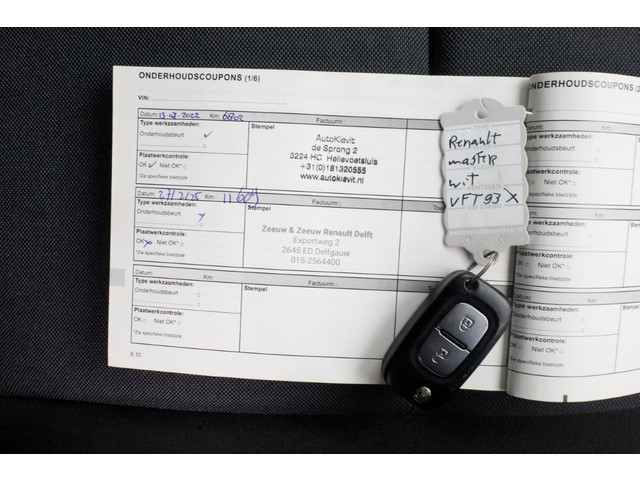 ONDERHOUDSCOUPONS (1/6)
VIN:
Datum: Km: 6802 Factuurnr.:
Type werkzaamheden:
Onderhoudsbeurt
Plaatwerkcontrole:
OK Niet OK*
*Zie specifieke bladzijde
Stempel
AutoKievit
de Sprong 2
3224 HC Hellevoetsluis
+31(0)181320555
www.autokievit.nl
Datum: 27/2/25 Km: 11609 Factuurnr.:
Type werkzaamheden:
Onderhoudsbeurt
Plaatwerkcontrole:
OK Niet OK*
*Zie specifieke bladzijde
Stempel
Zeeuw & Zeeuw Renault Delft
Exportweg 2
2645 ED Delfgauw
015-2564400
Datum: Km: Factuurnr.:
Type werkzaamheden:
Onderhoudsbeurt
Plaatwerkcontrole:
OK Niet OK*
*Zie specifieke bladzijde
Stempel
6.10
Renault
master
wit
VFT93X
ONDERHOUDSCOUPONS (2
VIN:
Type werkzaamheden:
Onderhoudsbeurt
Plaatwerkcontrole:
OK Niet OK*
*Zie specifieke bladzijde
Datum:
Type werkzaamheden:
Onderhoudsbeurt
Plaatwerkcontrole:
OK Niet OK*
*Zie specifieke bladzijde
Datum:
Type werkzaamheden:
Onderhoudsbeurt
Plaatwerkcontrole:
OK Niet OK*
*Zie specifieke bladzijde